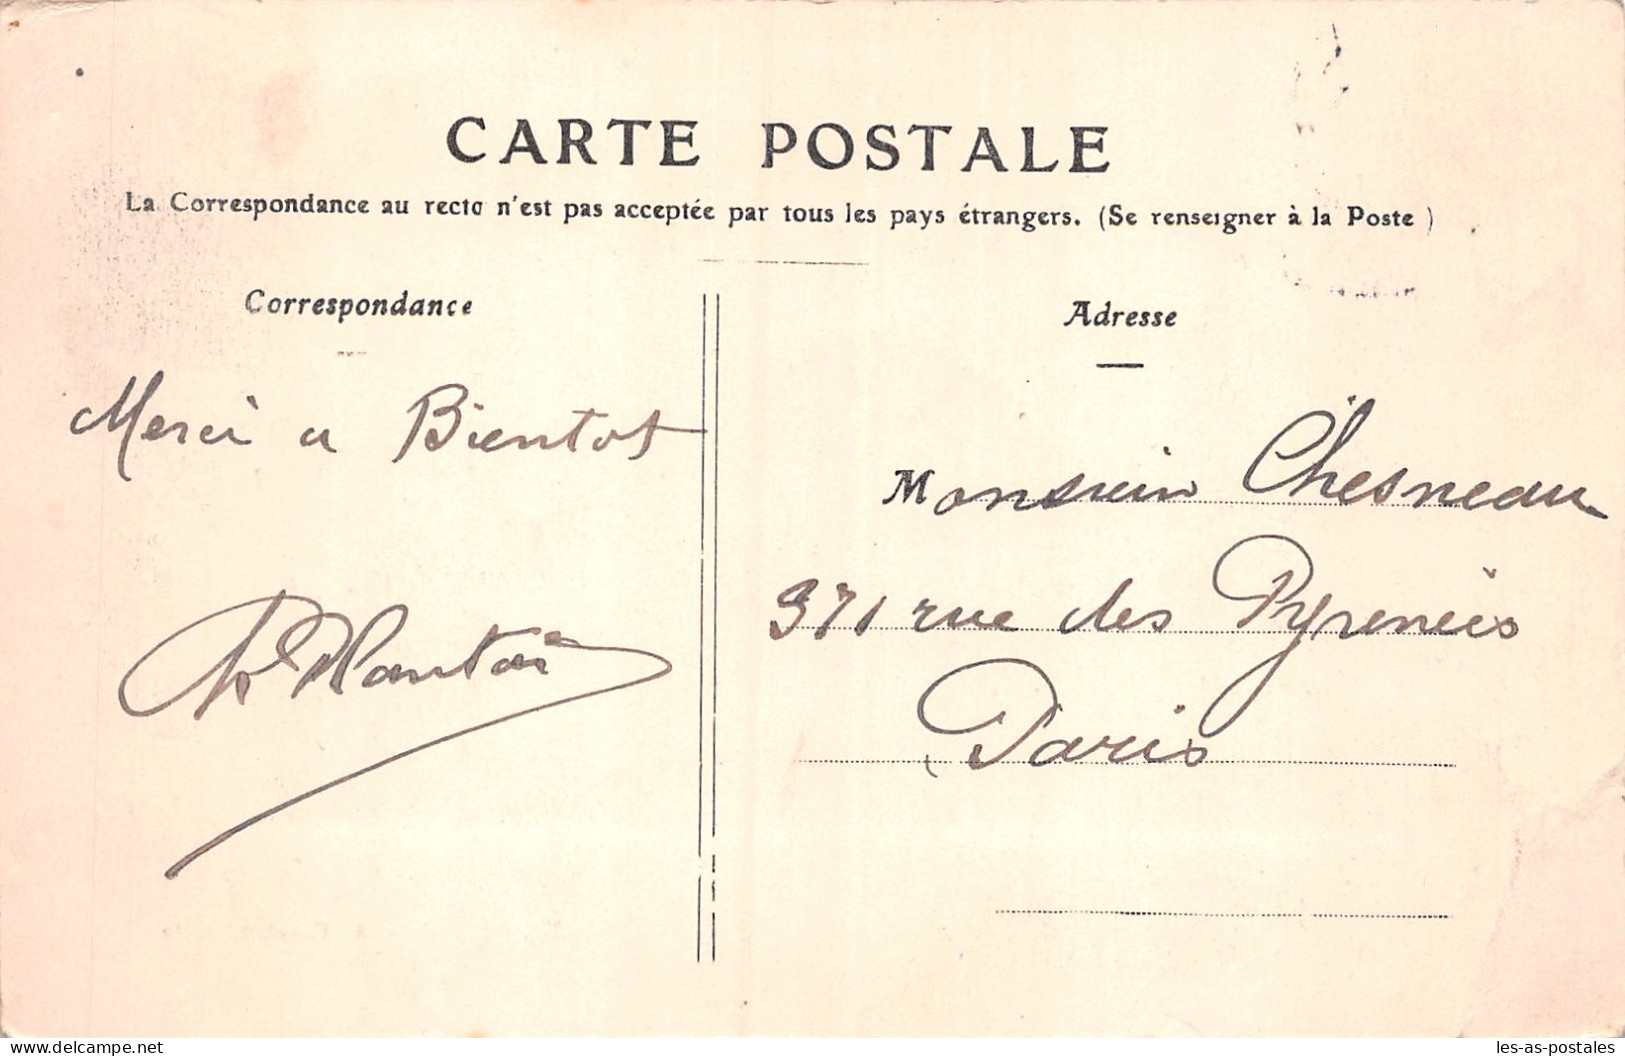 CARTE POSTALE
La Correspondance au recto n'est pas acceptée par tous les pays étrangers. (Se renseigner à la Poste )
Correspondance
Merci a Bientot
Adresse
Monsieur Chesneau
371 rue des Pyrenées
Paris
www.delcampe.net
les-as-postales